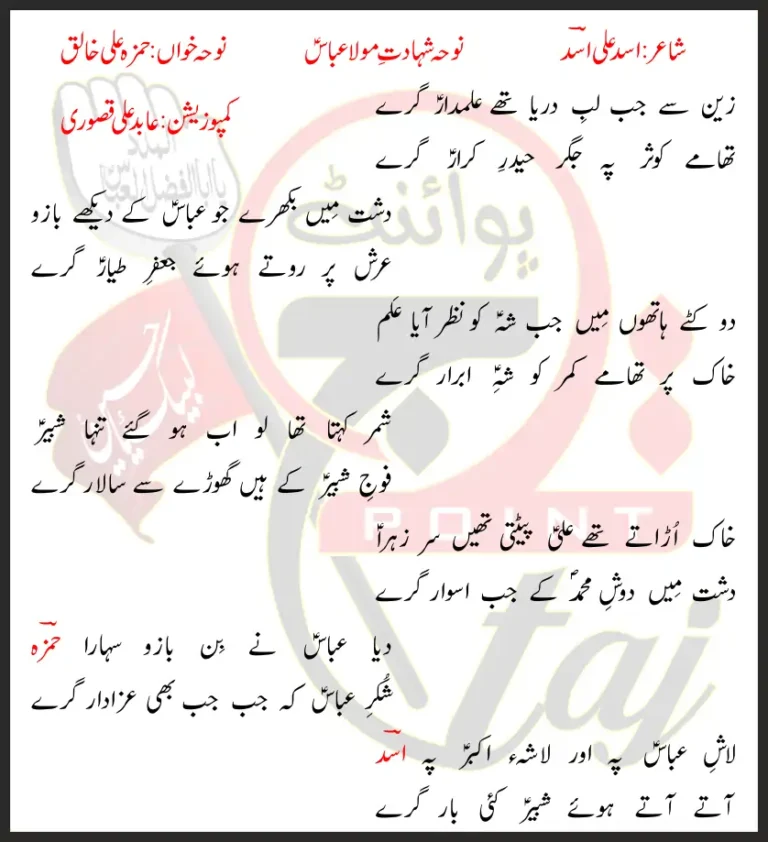 شاعر: اسد علی اسدؔ نوحہ شہادتِ مولا عباسؑ نوحہ خواں: حمزہ علی خالق
کمپوزیشن: عابد علی قصوری
زین سے جب لبِ دریا تھے علمدارؑ گرے
تھامے کوثر پہ جگر حیدرِ کرارؑ گرے
دشت میں بکھرے جو عباسؑ کے دیکھے بازو
عرش پر روتے ہوئے جعفرِ طیارؑ گرے
دو کٹے ہاتھوں میں جب شہؑ کو نظر آیا علم
خاک پر تھامے کمر کو شہِؑ ابرار گرے
شمر کہتا تھا لو اب ہو گئے تنہا شبیرؑ
فوجِ شبیرؑ کے ہیں گھوڑے سے سالار گرے
خاک اُڑاتے تھے علیؑ پیٹتی تھیں سر زہراؑ
دشت میں دوشِ محمدؐ کے جب اسوار گرے
دیا عباسؑ نے بِن بازو سہارا حمزہؔ
شُکرِ عباسؑ کہ جب جب بھی عزادار گرے
لاشِ عباسؑ پہ اور لاشہء اکبرؑ پہ اسدؔ
آتے آتے ہوئے شبیرؑ کئی بار گرے
پوائنٹ
ج
POINT
taj
لبیک یا حسین